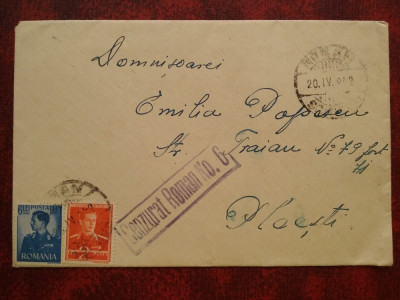 Domnișoarei
ROMAN
20.IV.942
Emilia Popescu
Str. Traian No 79 fost
71
Cenzurat Roman No. 6
Ploești
ROMANIA
2